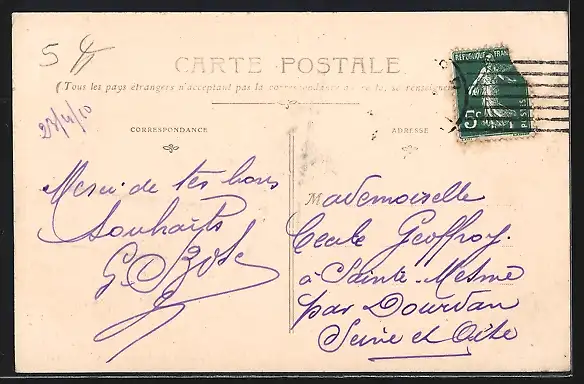 5
CARTE POSTALE
(Tous les pays étrangers n'acceptent pas la correspondance au recto, se renseigner
27/4/10
CORRESPONDANCE
ADRESSE
REPUBLIQUE FRAN
5c
POSTES
Merci de tes bons
souhaits
Mademoiselle
Cécile Geoffroy
à Sainte-Mesme
par Dourdan
Seine et Oise